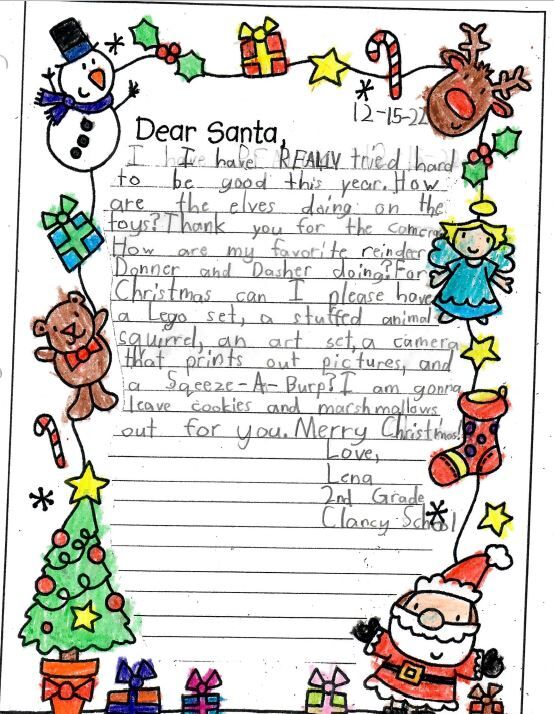 12-15-22
Dear Santa,
I have I have REALLY tried hard
to be good this year. How
are the elves doing on the
toys? Thank you for the camera.
How are my favorite reindeer
Donner and Dasher doing? For
Christmas can I please have
a Lego set, a stuffed animal
squirrel, an art set, a camera
that prints out pictures, and
a Squeeze-A-Burp? I am gonna
leave cookies and marshmallows
out for you. Merry Christmas!
Love,
Lena
2nd Grade
Clancy School